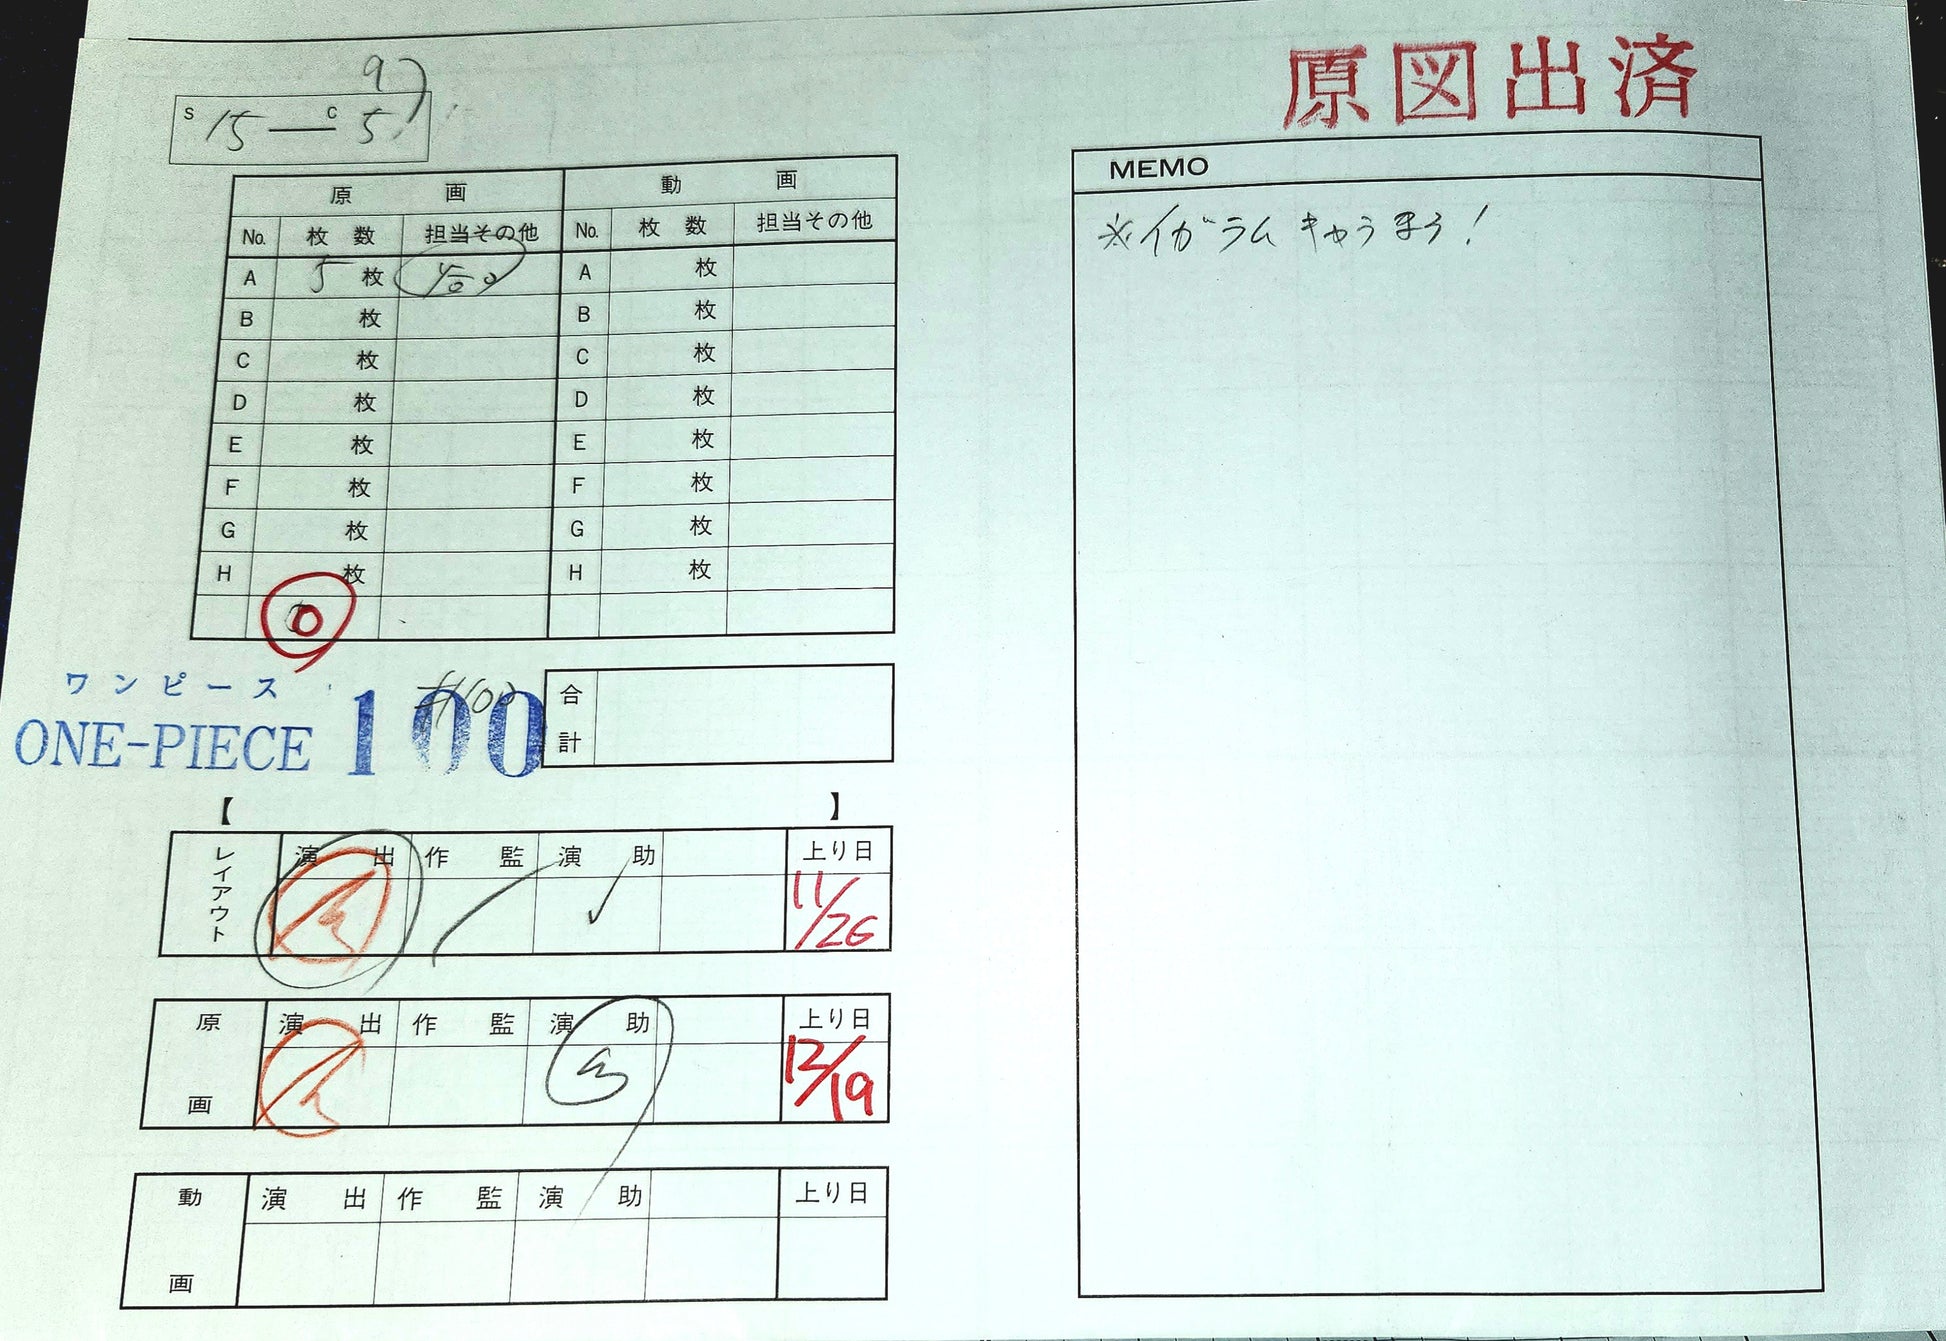 原図出済
9)
S 15 — C 5
原画 動画
No. 枚数 担当その他 No. 枚数 担当その他
A 5枚 A 枚
B 枚 B 枚
C 枚 C 枚
D 枚 D 枚
E 枚 E 枚
F 枚 F 枚
G 枚 G 枚
H 枚 H 枚
0
ワンピース
ONE-PIECE 100 #100
合計
【 】
レイアウト 演出 作監 演助 上り日
11/26
原画 演出 作監 演助 上り日
12/19
動画 演出 作監 演助 上り日
MEMO
※イガラム